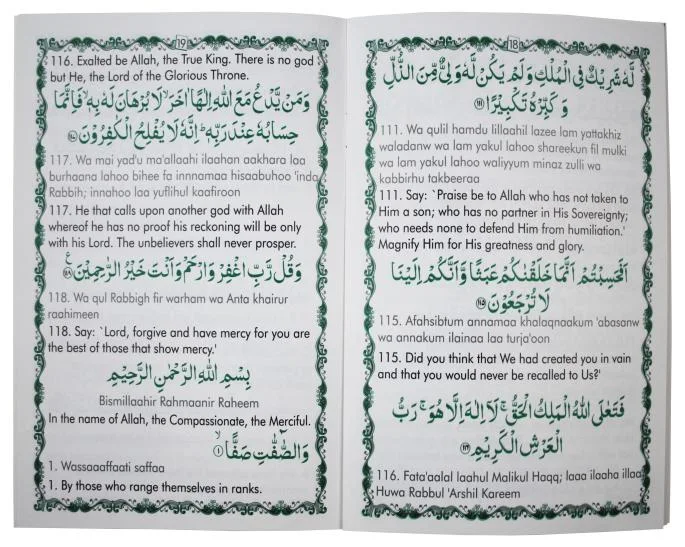 18
لَّهٗ شَرِيْكٌ فِي الْمُلْكِ وَلَمْ يَكُنْ لَّهٗ وَلِيٌّ مِّنَ الذُّلِّ
وَكَبِّرْهُ تَكْبِيْرًا ﴿۱۱۱﴾
111. Wa qulil hamdu lillaahil lazee lam yattakhiz
waladanw wa lam yakul lahoo shareekun fil mulki
wa lam yakul lahoo waliyyum minaz zulli wa
kabbirhu takbeeraa
111. Say: `Praise be to Allah who has not taken to
Him a son; who has no partner in His Sovereignty;
who needs none to defend Him from humiliation.'
Magnify Him for His greatness and glory.
اَفَحَسِبْتُمْ اَنَّمَا خَلَقْنٰكُمْ عَبَثًا وَّاَنَّكُمْ اِلَيْنَا
لَا تُرْجَعُوْنَ ﴿۱۱۵﴾
115. Afahsibtum annamaa khalaqnaakum 'abasanw
wa annakum ilainaa laa turja'oon
115. Did you think that We had created you in vain
and that you would never be recalled to Us?'
فَتَعٰلَى اللّٰهُ الْمَلِكُ الْحَقُّ ۚ لَاۤ اِلٰهَ اِلَّا هُوَ ۚ رَبُّ
الْعَرْشِ الْكَرِيْمِ ﴿۱۱۶﴾
116. Fata'aalal laahul Malikul Haqq; laaa ilaaha illaa
Huwa Rabbul 'Arshil Kareem
19
116. Exalted be Allah, the True King. There is no god
but He, the Lord of the Glorious Throne.
وَمَنْ يَّدْعُ مَعَ اللّٰهِ اِلٰهًا اٰخَرَ ۙ لَا بُرْهَانَ لَهٗ بِهٖ ۙ فَاِنَّمَا
حِسَابُهٗ عِنْدَ رَبِّهٖ ؕ اِنَّهٗ لَا يُفْلِحُ الْكٰفِرُوْنَ ﴿۱۱۷﴾
117. Wa mai yad'u ma'allaahi ilaahan aakhara laa
burhaana lahoo bihee fa innnamaa hisaabuhoo 'inda
Rabbih; innahoo laa yuflihul kaafiroon
117. He that calls upon another god with Allah
whereof he has no proof his reckoning will be only
with his Lord. The unbelievers shall never prosper.
وَقُلْ رَّبِّ اغْفِرْ وَارْحَمْ وَاَنْتَ خَيْرُ الرّٰحِمِيْنَ ﴿۱۱۸﴾ ع
118. Wa qul Rabbigh fir warham wa Anta khairur
raahimeen
118. Say: `Lord, forgive and have mercy for you are
the best of those that show mercy.'
بِسْمِ اللّٰهِ الرَّحْمٰنِ الرَّحِيْمِ
Bismillaahir Rahmaanir Raheem
In the name of Allah, the Compassionate, the Merciful.
وَالصّٰٓفّٰتِ صَفًّا ۙ ﴿۱﴾
1. Wassaaaffaati saffaa
1. By those who range themselves in ranks.